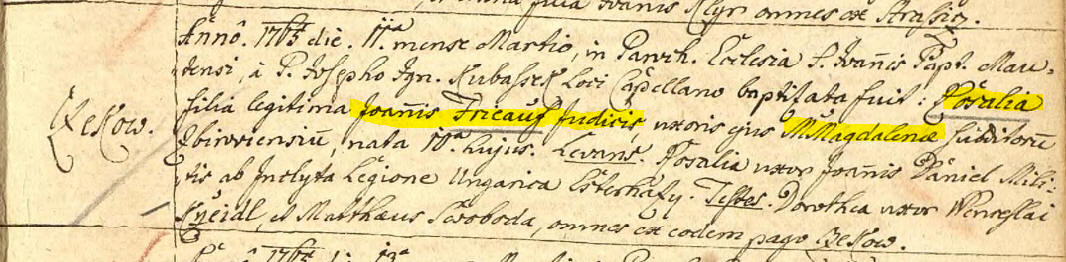 omnes ex Straſic.
Añnô. 1765 die. 11ª mense Martio, in Paroch. Ecclesia S. Joañis Bapt. Mau-
tensi, à P. Josepho Ign. Kubaſsek Loci Capellano baptisata fuit: Rosalia
filia legitima Joañis Tricauſ Judicis uxoris ejus M Magdalenæ subditorũ
Zbiroviensiũ, nata 10ª hujus. Levans. Rosalia uxor Joañis Daniel Mili-
tis ab Inclyta Legione Ungarica Esterhasy. Testes. Dorothea uxor Wenceslai
Kneidl, et Matthæus Swoboda, omnes ex eodem pago Bekow.
Bekow.